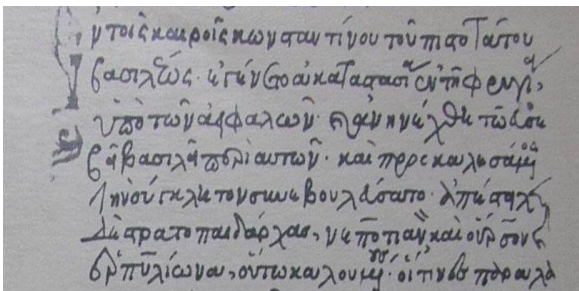 ἐν τοῖς καιροῖς κωνσταντίνου τοῦ πιστοτάτου
βασιλέως· ἐγένετο ἀκαταστασία ἐν τῇ φρυγί,
ὑπὸ τῶν ἀϊφάλων· καὶ ἀνηνέχθη τῶ εὐσε
βεῖ βασιλεῖ περὶ αὐτῶν· καὶ προσκαλεσάμενος
τὴν σύγκλητον συνεβουλεύσατο· ἀπέστειλε
δὲ στρατοπαιδάρχας, νεποτιανὸν καὶ οὖρσον
ἐρπυλίωνα, οὕτω καλουμένους· οἵτινες παραλα